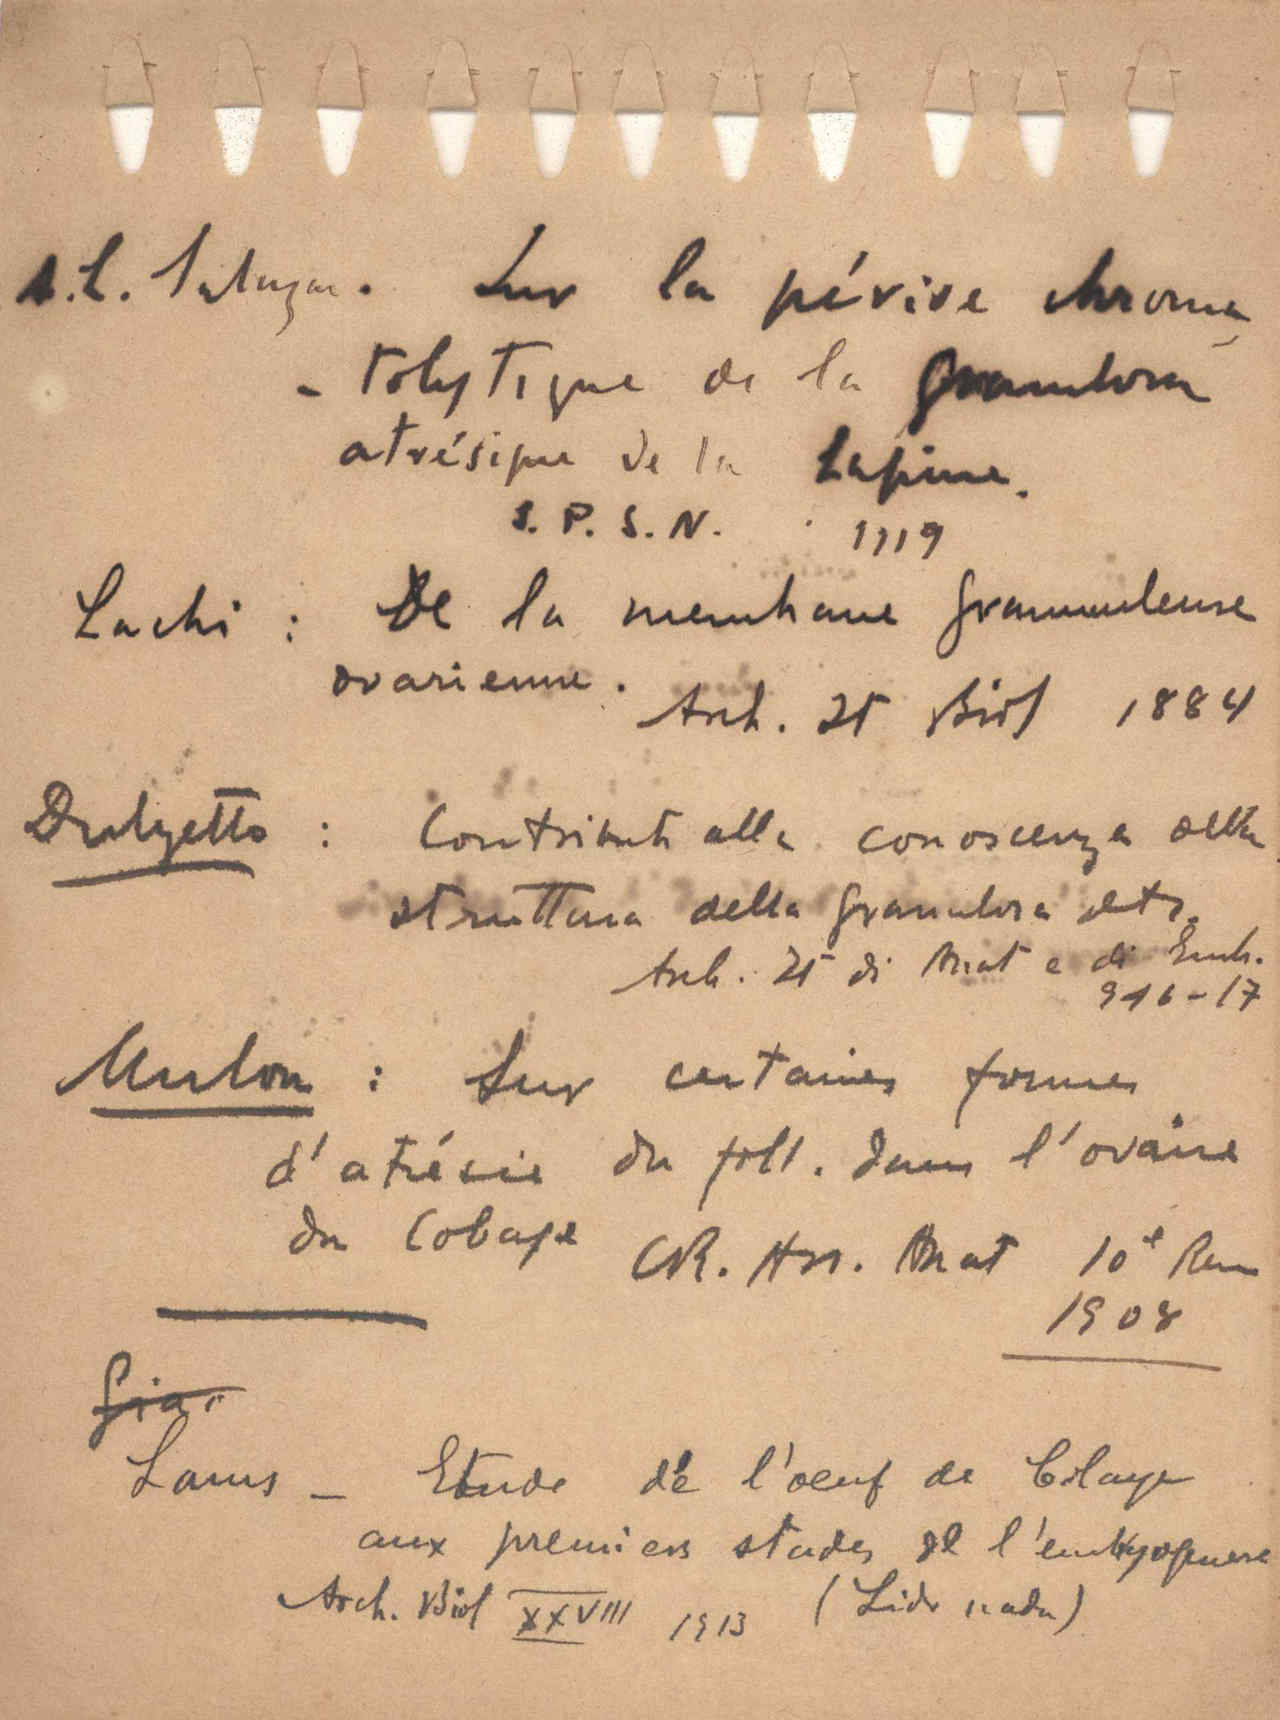 A.L. Salazar. Sur la pévise chroma
- tolytique de la granulosa
atrésique de la Lapine.
S. P. S. N. 1919
Lachi : De la membrane grannuleuse
ovarienne.
Arch. It Biol 1884
: Contributi alla conoscenza della
struttura della granulosa etc.
Arch. It di Anat e di Emb.
916-17
Mulon : Sur certaines formes
d'atrésie du foll. dans l'ovaire
du Cobaye
CR. Ass. Anat 10e Reu
1908
Lams - Etude de l'oeuf de Cobaye
aux premiers stades de l'embryogenese
Arch. Biol XXVIII 1913 (Lido nada)